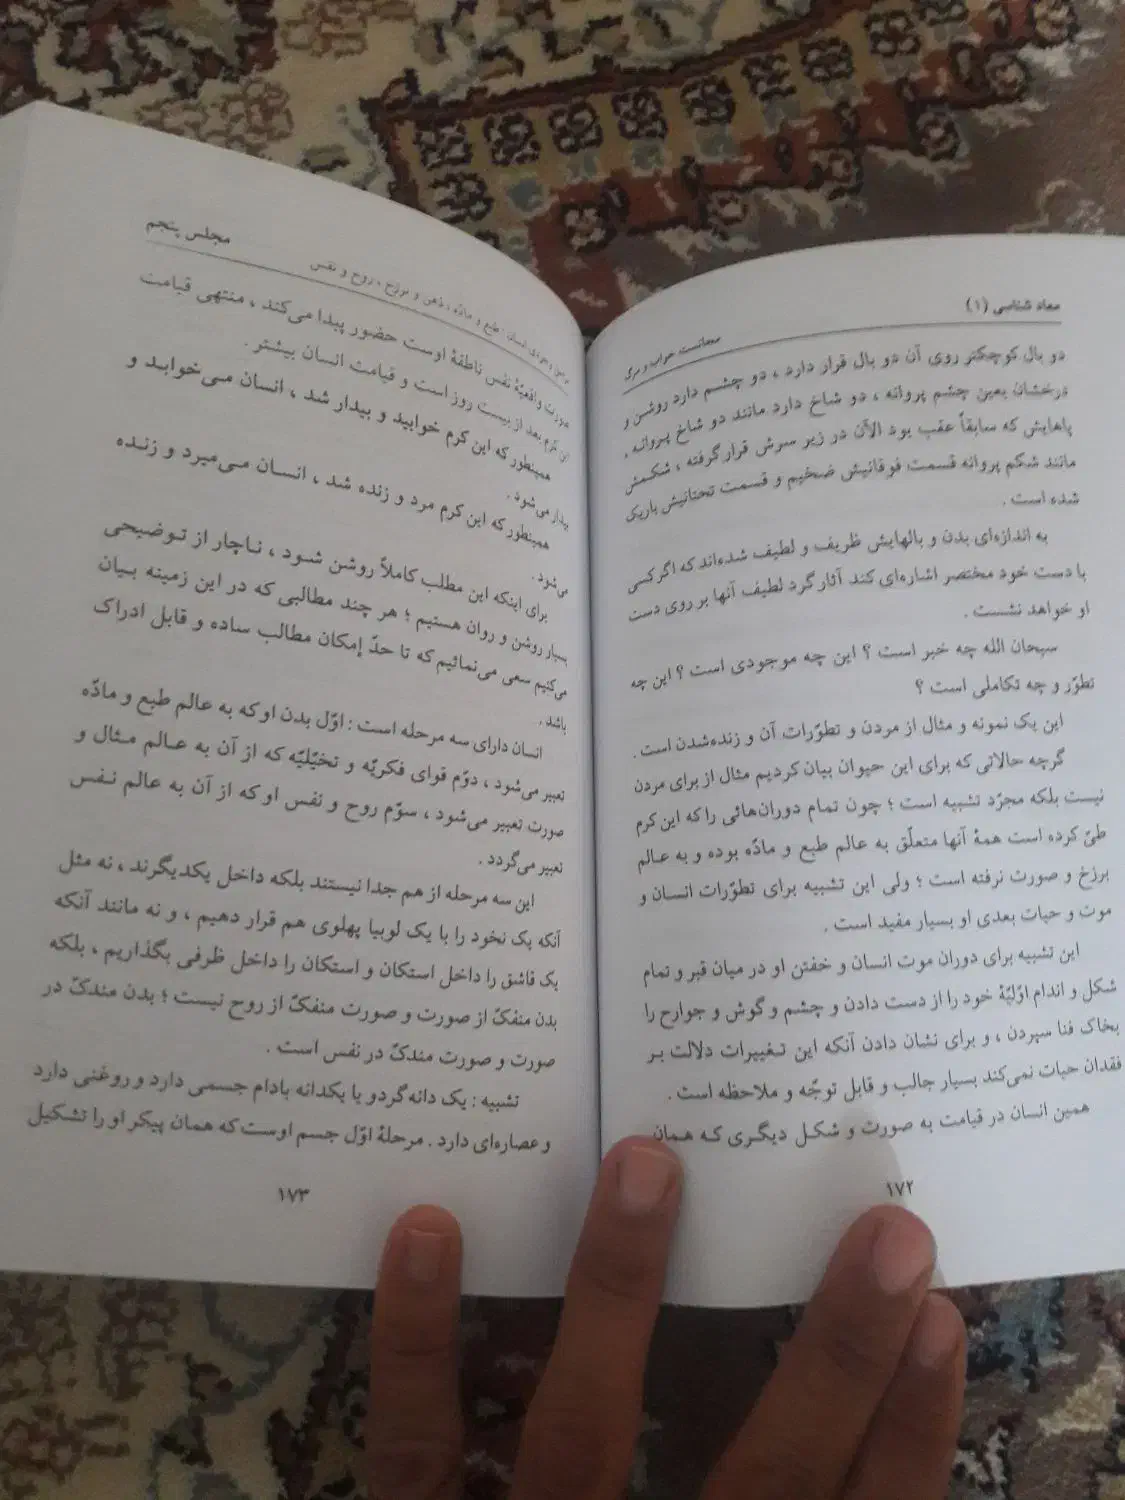 معاد شناسی (۱)
مجانست خواب و مرگ
دو بال کوچکتر روی آن دو بال قرار دارد ، دو چشم دارد روشن و
درخشان بعین چشم پروانه ، دو شاخ دارد مانند دو شاخ پروانه .
پاهایش که سابقاً عقب بود الآن در زیر سرش قرار گرفته ، شکمش
مانند شکم پروانه قسمت فوقانیش ضخیم و قسمت تحتانیش باریک
شده است .
به اندازه‌ای بدن و بالهایش ظریف و لطیف شده‌اند که اگر کسی
با دست خود مختصر اشاره‌ای کند آثار گرد لطیف آنها بر روی دست
او خواهد نشست .
سبحان الله چه خبر است ؟ این چه موجودی است ؟ این چه
تطوّر و چه تکاملی است ؟
این یک نمونه و مثال از مردن و تطوّرات آن و زنده‌شدن است .
گرچه حالاتی که برای این حیوان بیان کردیم مثال از برای مردن
نیست بلکه مجرّد تشبیه است ؛ چون تمام دوران‌هائی را که این کرم
طیّ کرده است همهٔ آنها متعلّق به عالم طبع و مادّه بوده و به عالم
برزخ و صورت نرفته است ؛ ولی این تشبیه برای تطوّرات انسان و
موت و حیات بعدی او بسیار مفید است .
این تشبیه برای دوران موت انسان و خفتن او در میان قبر و تمام
شکل و اندام اوّلیّهٔ خود را از دست دادن و چشم و گوش و جوارح را
بخاک فنا سپردن ، و برای نشان دادن آنکه این تغییرات دلالت بر
فقدان حیات نمی‌کند بسیار جالب و قابل توجّه و ملاحظه است .
همین انسان در قیامت به صورت و شکل دیگری که همان
۱۷۲
مجلس پنجم
انسان : طبع و مادّه ، ذهن و برزخ ، روح و نفس
صورت واقعیّهٔ نفس ناطقهٔ اوست حضور پیدا می‌کند ، منتهی قیامت
این کرم بعد از بیست روز است و قیامت انسان بیشتر .
همینطور که این کرم خوابید و بیدار شد ، انسان می‌خوابد و
بیدار می‌شود .
همینطور که این کرم مرد و زنده شد ، انسان می‌میرد و زنده
می‌شود .
برای اینکه این مطلب کاملاً روشن شود ، ناچار از توضیحی
بسیار روشن و روان هستیم ؛ هر چند مطالبی که در این زمینه بیان
می‌کنیم سعی می‌نمائیم که تا حدّ إمکان مطالب ساده و قابل ادراک
باشد .
انسان دارای سه مرحله است : اوّل بدن او که به عالم طبع و مادّه
تعبیر می‌شود ، دوّم قوای فکریّه و تخیّلیّه که از آن به عالم مثال و
صورت تعبیر می‌شود ، سوّم روح و نفس او که از آن به عالم نفس
تعبیر می‌گردد .
این سه مرحله از هم جدا نیستند بلکه داخل یکدیگرند ، نه مثل
آنکه یک نخود را با یک لوبیا پهلوی هم قرار دهیم ، و نه مانند آنکه
یک قاشق را داخل استکان و استکان را داخل ظرفی بگذاریم ، بلکه
بدن منفکّ از صورت و صورت منفکّ از روح نیست ؛ بدن مندکّ در
صورت و صورت مندکّ در نفس است .
تشبیه : یک دانه گردو یا یکدانه بادام جسمی دارد و روغنی دارد
و عصاره‌ای دارد . مرحلهٔ اوّل جسم اوست که همان پیکر او را تشکیل
۱۷۳